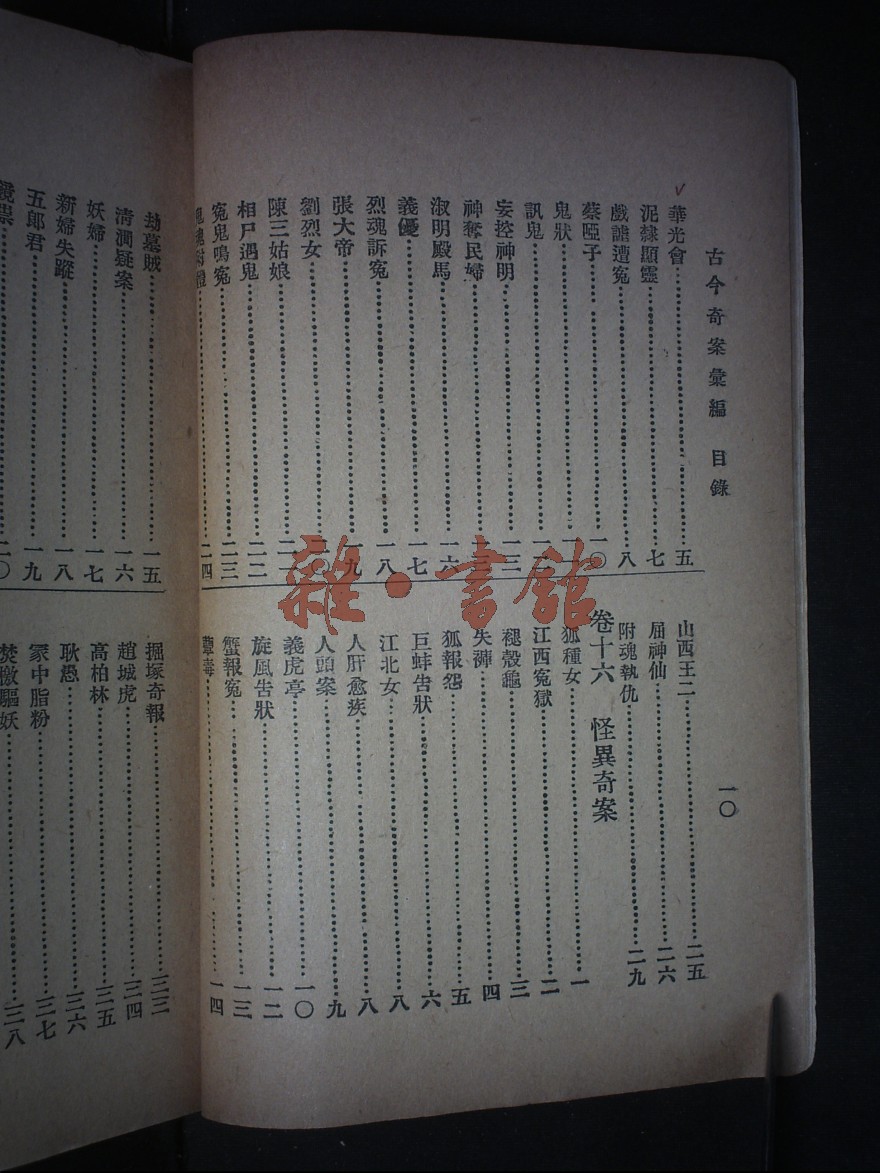 古今奇案彙編 目錄 一〇
華光會……五
泥隸顯靈……七
戲謔遭冤……八
蔡啞子……一〇
鬼狀……
訊鬼……
妄控神明……一三
神奪民婦……
淑明殿馬……一六
義優……一七
烈魂訴冤……一八
張大帝……一九
劉烈女……
陳三姑娘……
相尸遇鬼……二二
冤鬼鳴冤……二三
……二四
山西王二……二五
屈神仙……二六
附魂執仇……二九
卷十六 怪異奇案
狐種女……一
江西冤獄……二
褪殼龜……三
失褲……四
狐報怨……五
巨蚌告狀……六
江北女……八
人肝愈疾……八
人頭案……九
義虎亭……一〇
旋風告狀……一二
蟹報冤……一三
蕈毒……一四
劫墓賊……一五
清澗疑案……一六
妖婦……一七
新婦失蹤……一八
五郎君……一九
鏡祟……二〇
掘塚奇報……三三
趙城虎……三四
高柏林……三五
耿愚……三六
冢中脂粉……三七
焚檄驅妖……三八
雜·書館